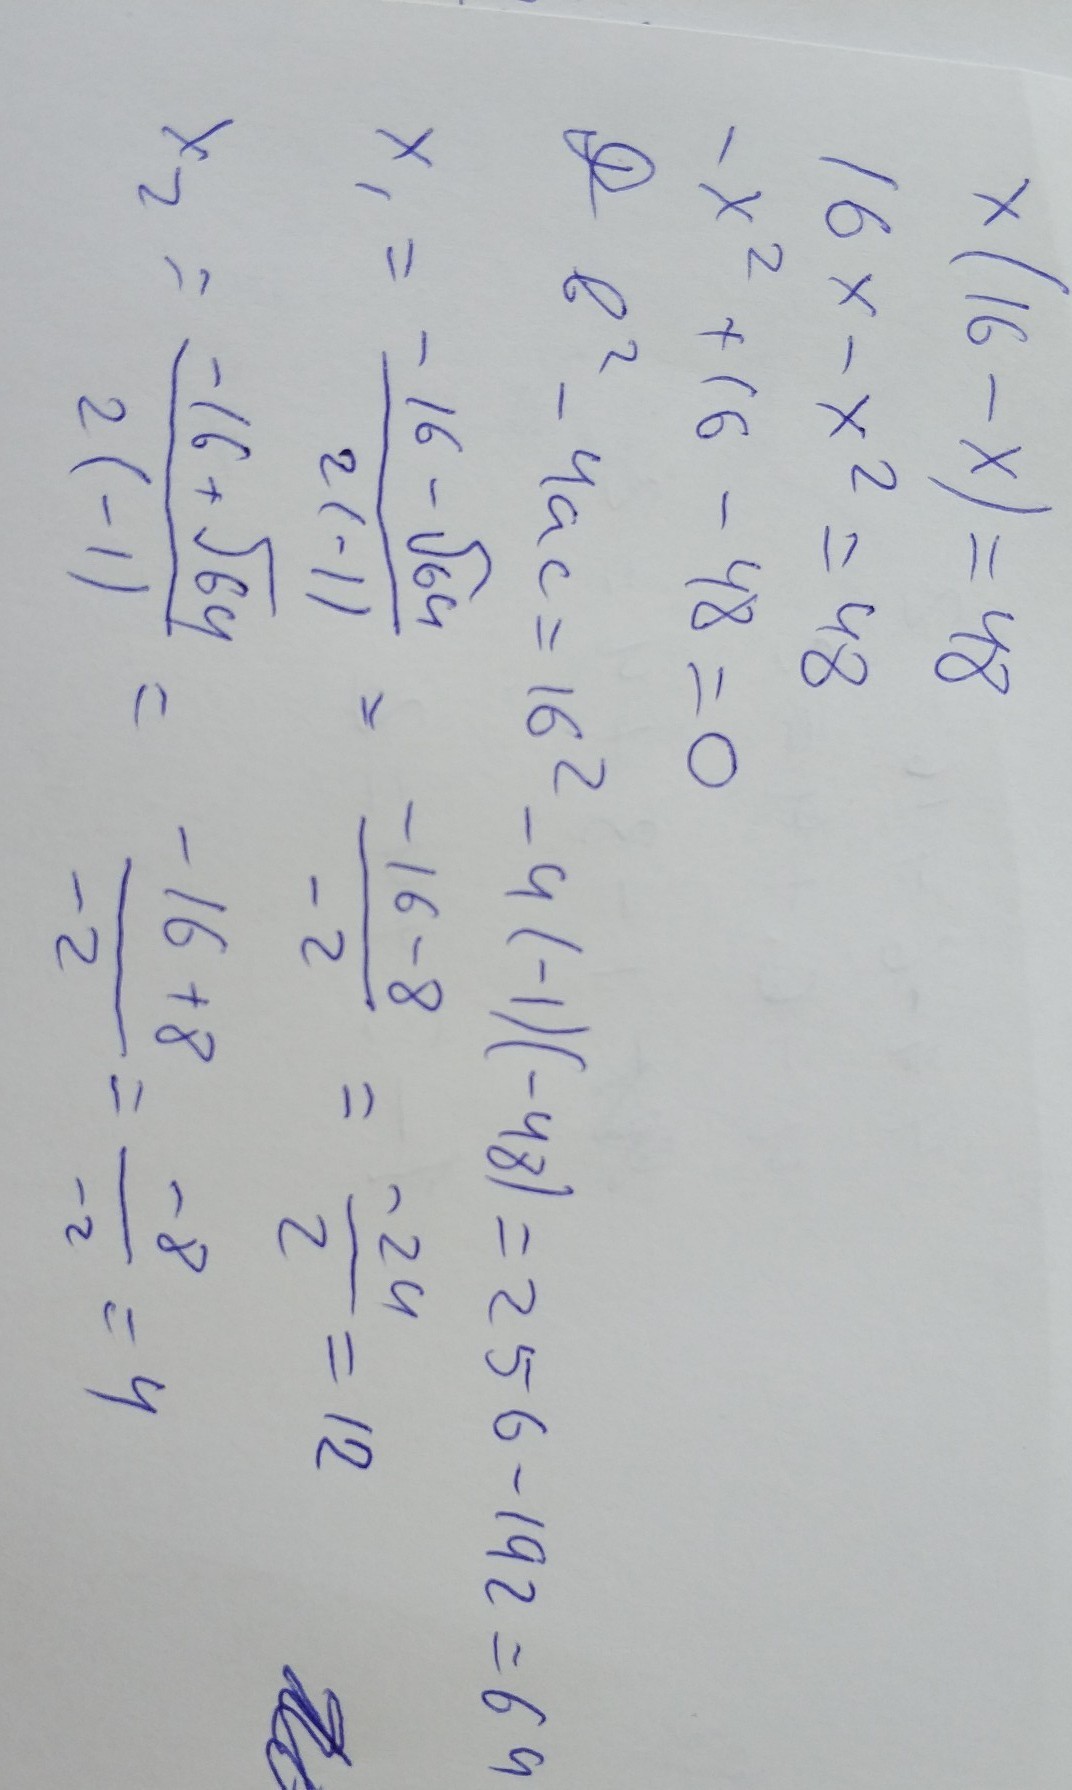 x(16-x)=48
16x-x²=48
-x²+16-48=0
b²-4ac=16²-4(-1)(-48)=256-192=64
x₁=(-16-√64)/(2(-1))=(-16-8)/(-2)=(-24)/2=12
x₂=(-16+√64)/(2(-1))=(-16+8)/(-2)=(-8)/(-2)=4